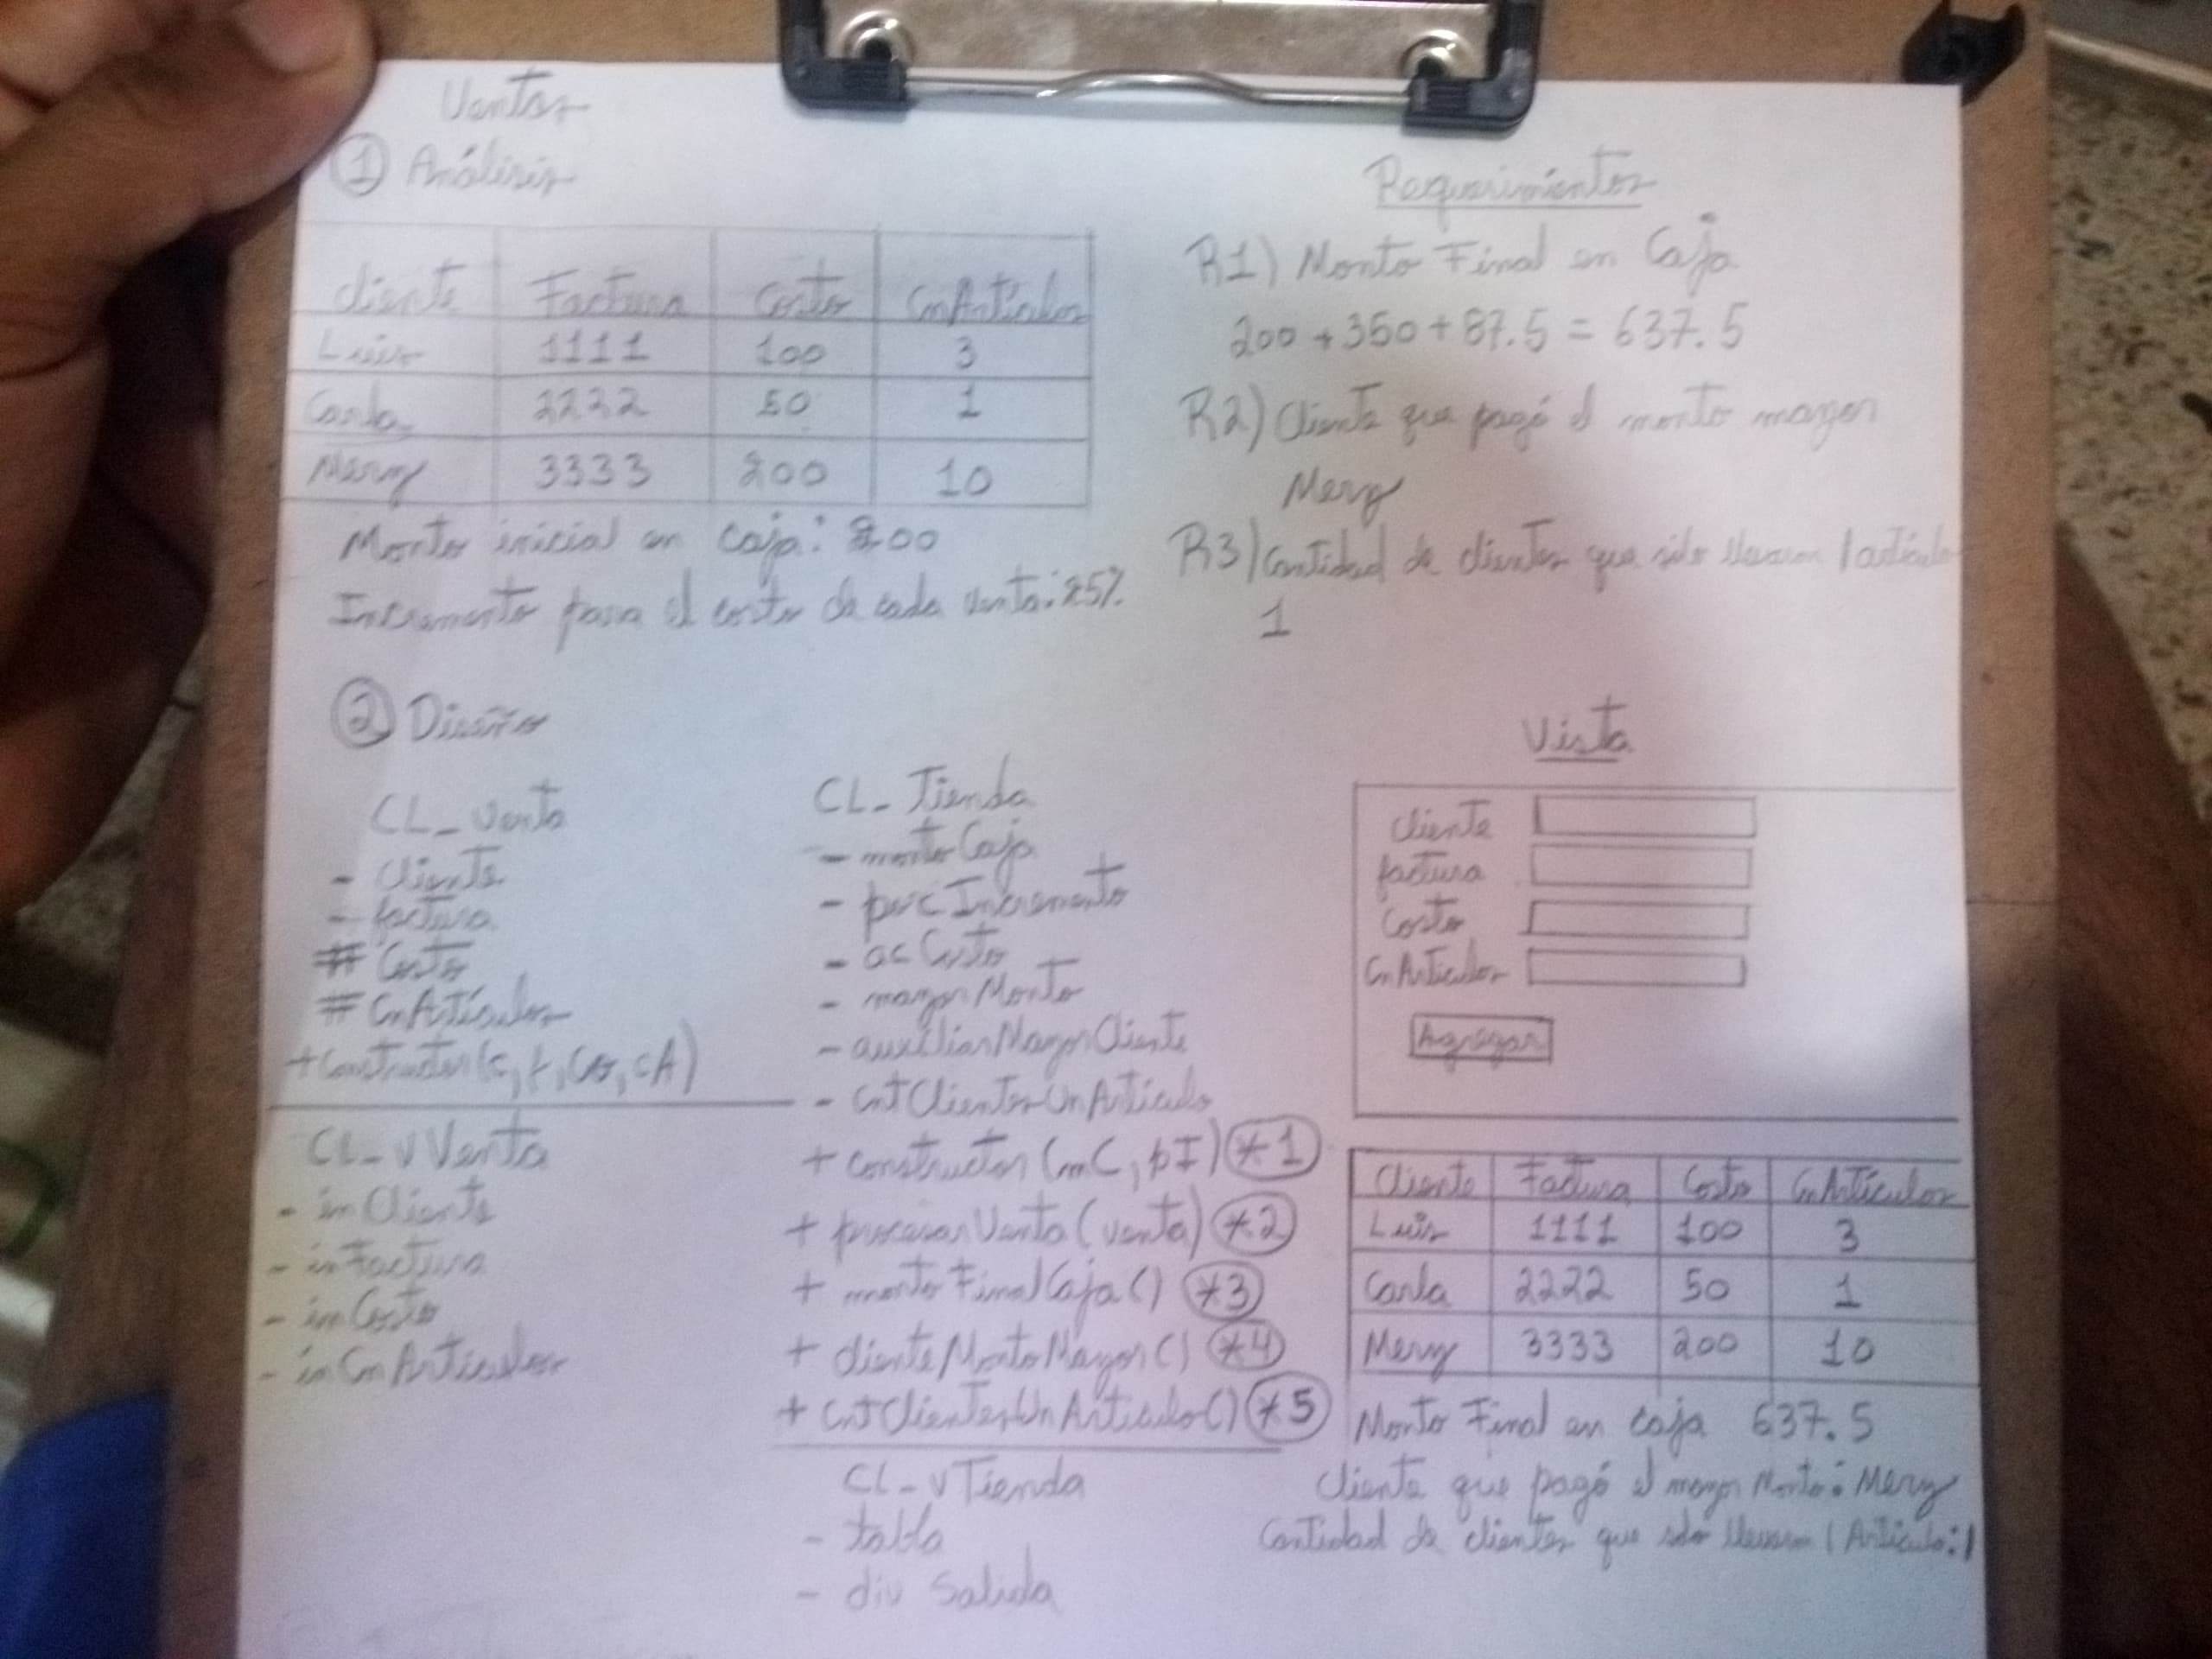 Ventas
① Análisis
Cliente Factura Costo CnArtículos
Luis 1111 100 3
Carla 2222 50 1
Mery 3333 200 10
Monto inicial en caja: 200
Incremento para el costo de cada venta: 25%
Requerimientos
R1) Monto Final en Caja
200 + 350 + 87.5 = 637.5
R2) Cliente que pagó el monto mayor
Mery
R3) Cantidad de clientes que sólo llevaron 1 artículo
1
② Diseño
CL_Venta
- Cliente
- factura
# Costo
# CnArtículos
+ constructor(c, f, Cos, cA)
CL_vVenta
- inCliente
- inFactura
- inCosto
- inCnArticulos
CL_Tienda
- montoCaja
- porcIncremento
- acCosto
- mayorMonto
- auxiliarMayorCliente
- cntClientesUnArticulo
+ constructor (mC, pI) *1
+ procesarVenta (venta) *2
+ montoFinalCaja () *3
+ clienteMontoMayor () *4
+ cntClientesUnArticulo () *5
CL_vTienda
- tabla
- div Salida
Vista
Cliente
factura
Costo
CnArticulos
Agregar
Cliente Factura Costo CnArtículos
Luis 1111 100 3
Carla 2222 50 1
Mery 3333 200 10
Monto Final en caja 637.5
Cliente que pagó el mayor Monto: Mery
Cantidad de clientes que sólo llevaron 1 Artículo: 1